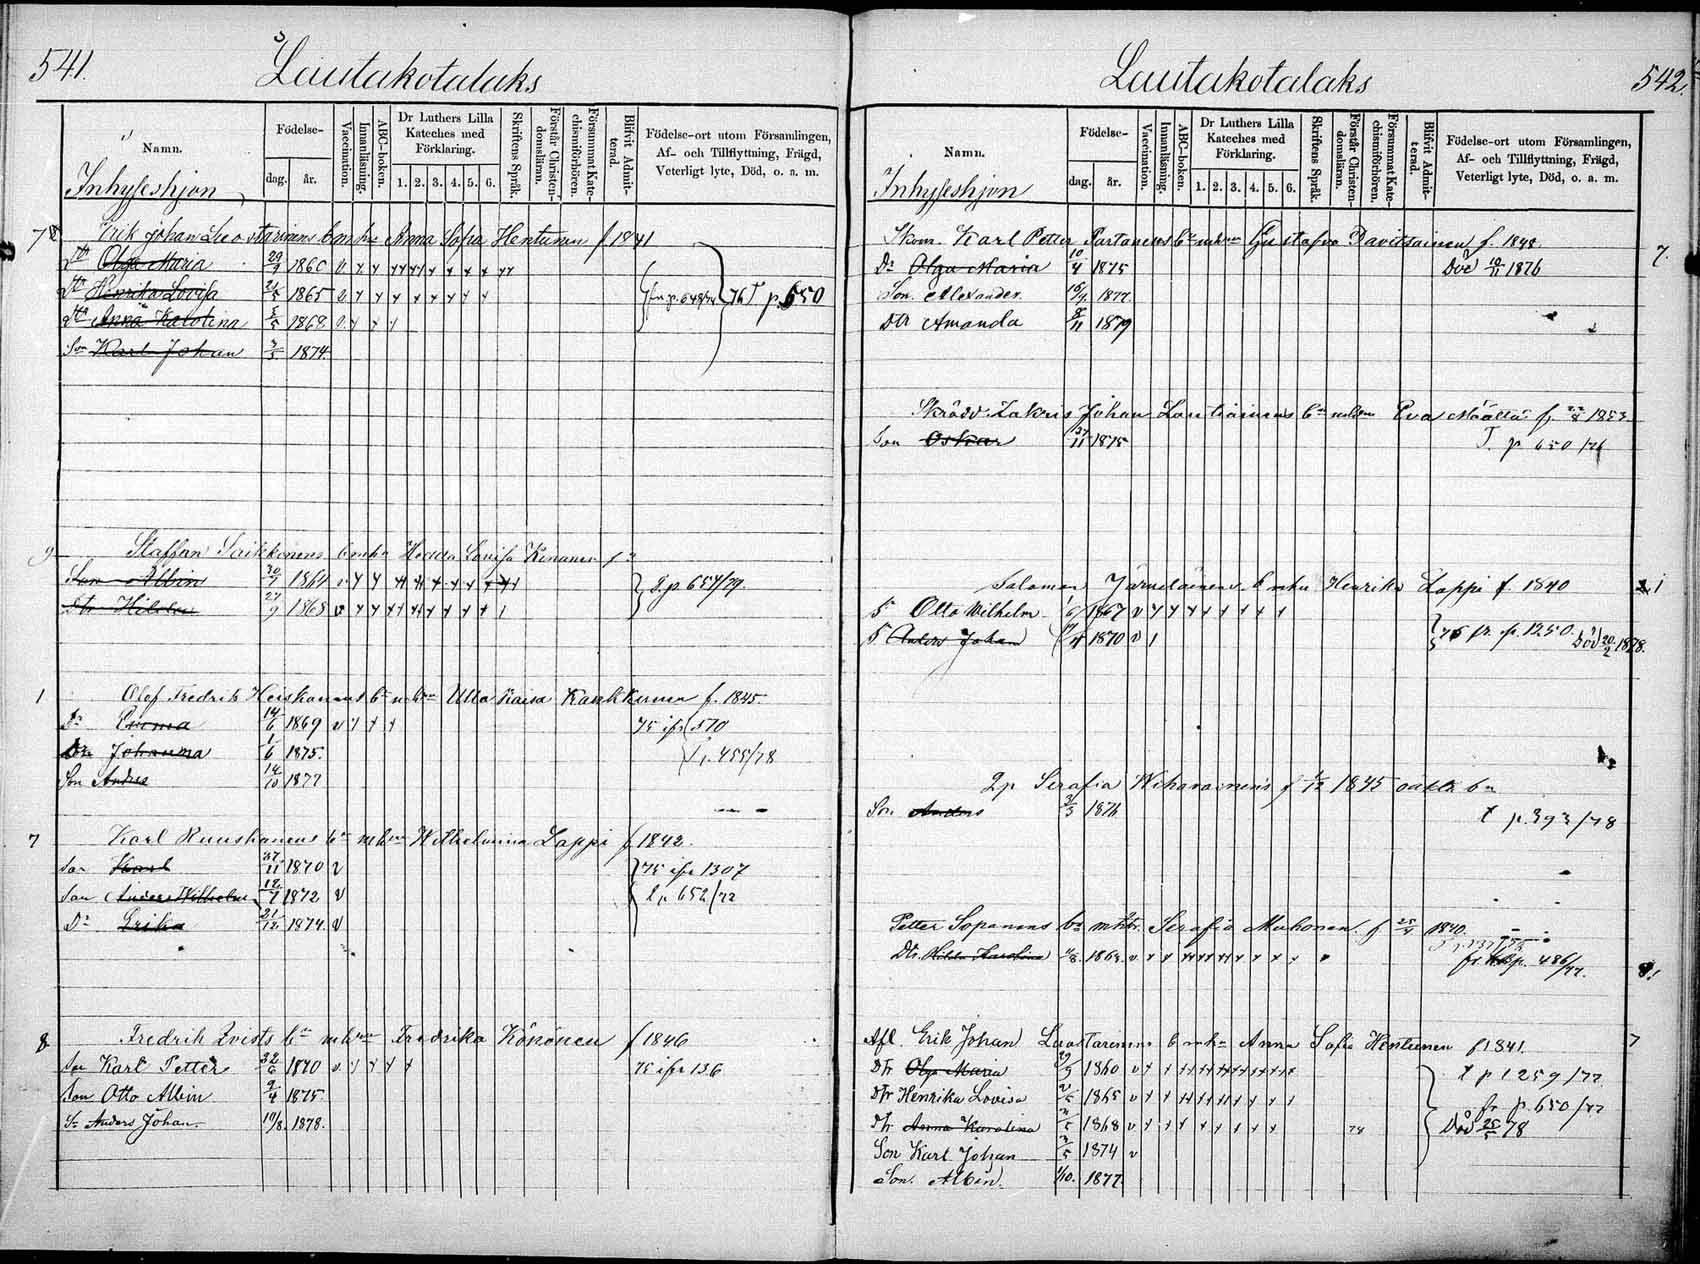 541.
Lautakotalaks
Namn.
Födelse-
dag.
år.
Vaccination.
Innanläsning.
ABC-boken.
Dr Luthers Lilla
Kateches med
Förklaring.
1. 2. 3. 4. 5. 6.
Skriftens Språk.
Förstår Christen-
domsläran.
Försummat Kate-
chismiförhören.
Blifvit Admit-
terad.
Födelse-ort utom Församlingen,
Af- och Tillflyttning, Frägd,
Veterligt lyte, Död, o. a. m.
Inhyseshjon
Erik Johan Luostarinens bn m hu Anna Sofia Hentunen f 1841
Dtr Olga Maria 29/9 1860
Dtr Henrika Lovisa 1865 p. 650
Dtr Anna Karolina 1868
Son Karl Johan 3/5 1874
9 Staffan Saikkonens bn m hu Hedda Lovisa Kinanen f
Son Albin 30/7 1864 p 654/79.
Dtr Hilda 27/9 1868
1 Olof Fredrik Heiskanens bn m hu Ulla Kaisa Karkkunen f. 1845.
Dr Emma 14/6 1869 75 ifr 570
Dtr Johanna 1/6 1875. 455/78
Son Andrs 14/10 1877
7 Karl Ruuskanens bn m hu Wilhelmina Lappi f 1842.
Son Karl 27/11 1870 v 75 ifr 1307
Son Anders Wilhelm 12/7 1872 v p 652/77
Dr Erika 21/12 1874. v
8 Fredrik Qvists bn m hu Fredrika Könönen f 1846
Son Karl Petter 1870 75 ifr 136
Son Otto Albin 9/4 1875
Sn Anders Johan. 10/8. 1878.
542.
Lautakotalaks
Namn.
Födelse-
dag.
år.
Vaccination.
Innanläsning.
ABC-boken.
Dr Luthers Lilla
Kateches med
Förklaring.
1. 2. 3. 4. 5. 6.
Skriftens Språk.
Förstår Christen-
domsläran.
Försummat Kate-
chismiförhören.
Blifvit Admit-
terad.
Födelse-ort utom Församlingen,
Af- och Tillflyttning, Frägd,
Veterligt lyte, Död, o. a. m.
Inhyseshjon
Skom. Karl Petter Partanens bn m hu Gustafva Davitsainen f. 1848. 7.
Dr Olga Maria 10/4 1875 Död 10/11 1876
Son Alexander 1877
Dtr Amanda 8/11 1879
Skrädd. Zakris Johan Lautiainens bn m hu Eva Määttä f. 1853.
Son Oskar 27/11 1875 T. p 650/76
Salomon Järveläinens bn m hu Henrika Lappi f. 1840
S Otto Wilhelm 1867
S Anders Johan 1870 v 1 75 fr. p. 1250. Död 20/2 1878.
Serafia Wihavainens f 1/12 1845 oäkta bn
Son Anders 3/3 1876 t p. 393/78
Petter Sopanens bn m hu Serafia Muhonen f 25/4 1840.
Dtr. Hilda Karolina 1863. p. 486/77.
Afl. Erik Johan Luostarinens bn m hu Anna Sofia Hentunen f 1841. 7
Dtr Olga Maria 29/9 1860 t p 1259/77
Dtr Henrika Lovisa 1865 fr p. 650/77
Dtr Anna Karolina 1868 78 Död 25/5 78
Son Karl Johan 3/5 1874 v
Son. Albin. 1/10. 1877.